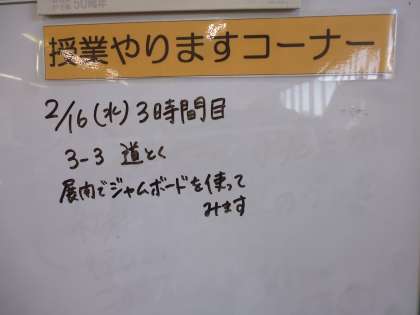 50周年
授業やりますコーナー
2/16(水)3時間目
3-3 道とく
展開でジャムボードを使って
みます